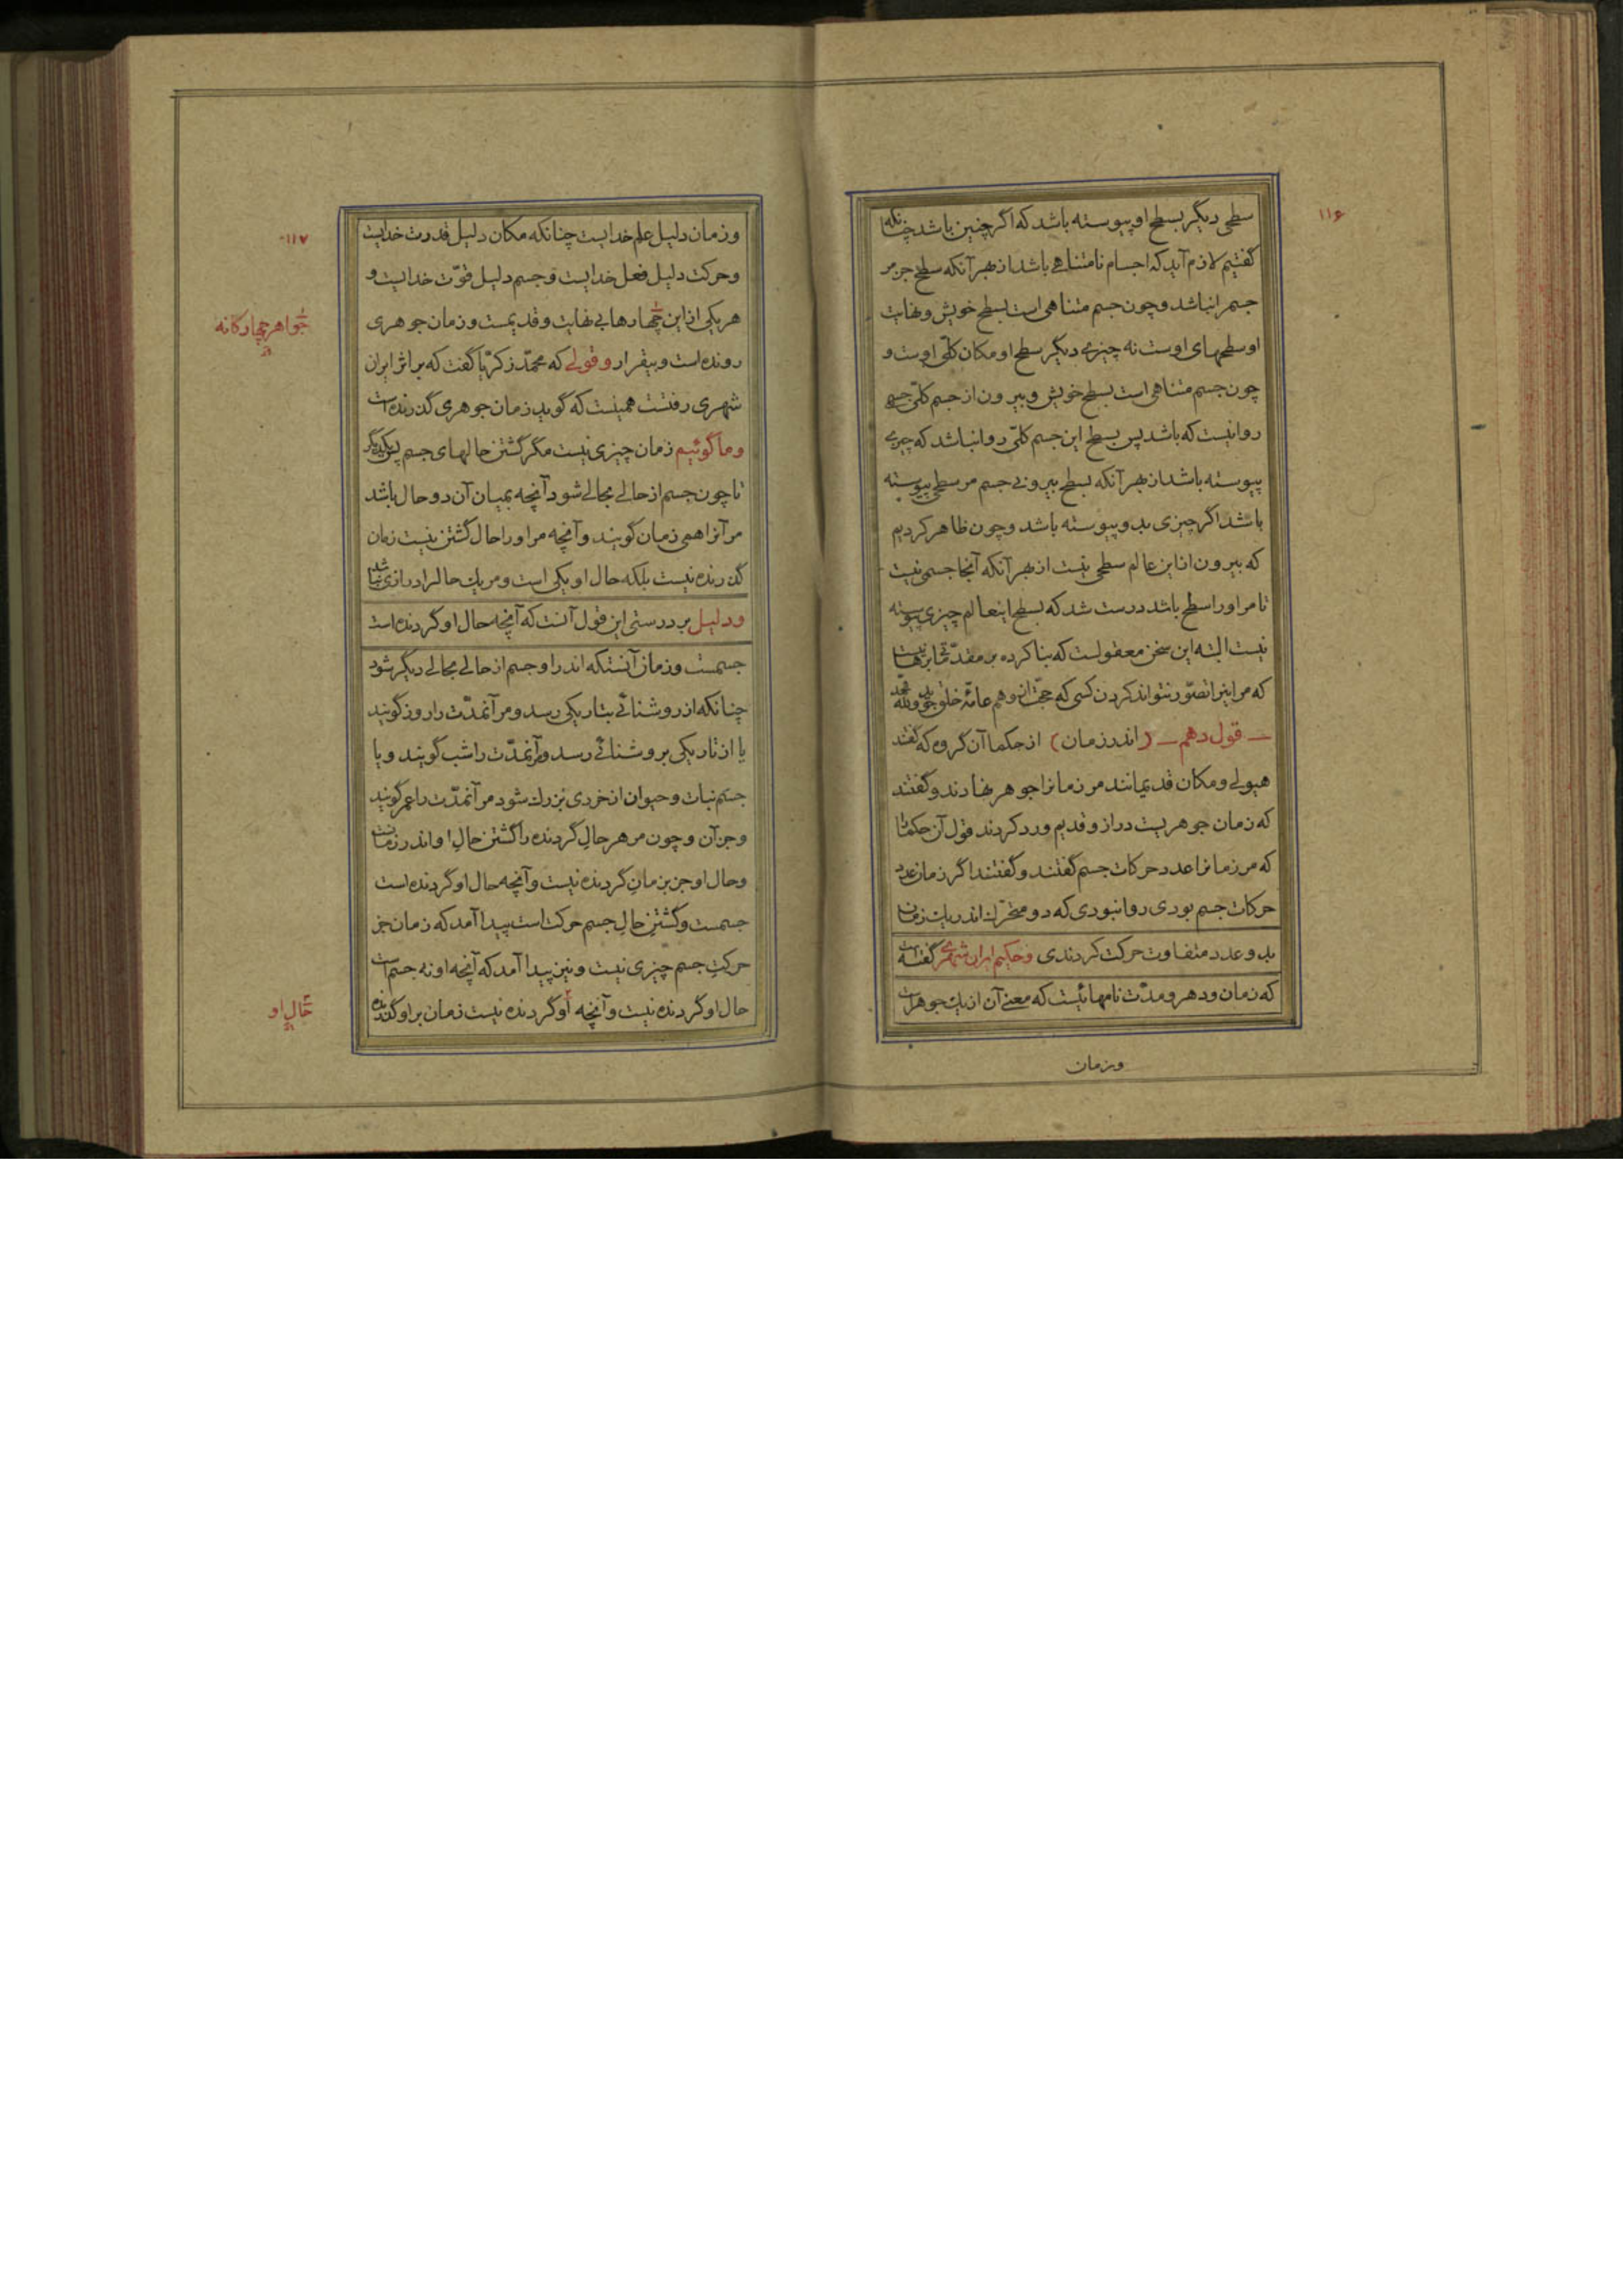 ۱۱۶
سطحی دیگر بسطح او پیوسته باشد که اگر چنین باشد چنانکه
گفتیم لازم آید که اجسام نامتناهی باشد از بهر آنکه سطح جز مر
جسم را نباشد و چون جسم متناهی است بسطح خویش و نهایت
او سطحهای اوست نه چیزی دیگر سطح او مکان کلّی اوست و
چون جسم متناهی است بسطح خویش و بیرون از جسم کلّی جسمی
روا نیست که باشد پس بسطح این جسم کلّی روا نباشد که چیزی
پیوسته باشد از بهر آنکه بسطح بیرونی جسم مر سطحی پیوسته
باشد اگر چیزی بدو پیوسته باشد و چون ظاهر کردیم
که بیرون از این عالم سطحی نیست از بهر آنکه آنجا جسمی نیست
تا مر او را سطح باشد درست شد که بسطح اینعالم چیزی پیوسته
نیست البته این سخن معقولست که بنا کرده بر مقدّماتی برهانیست
که مر اینرا تصوّر نتواند کردن کسی که حجّت از وهم عامّه خلق جوید ولله الحمد
— قول دهم — (اندر زمان) از حکما آن گروه که گفتند
هیولی و مکان قدیمانند مر زمانرا جوهر نهادند و گفتند
که زمان جوهریست دراز و قدیم و رد کردند قول آن حکما را
که مر زمانرا عدد حرکات جسم گفتند و گفتند اگر زمان عدد
حرکات جسم بودی روا نبودی که دو متحرّک اندر یک زمان
بدو عدد متفاوت حرکت کردندی و حکیم ایران شهری گفته است
که زمان و دهر و مدّت نامهائیست که معنی آن از یک جوهر است
وزمان
۱۱۷
وزمان دلیل علم خدایست چنانکه مکان دلیل قدرت خدایست
و حرکت دلیل فعل خدایست و جسم دلیل قوّت خدایست و
هر یکی از این چهارها بی نهایت و قدیمست و زمان جوهری
جواهر چهارگانه
رونده است و بیقرار و قولی که محمّد زکریّا گفت که بر اثر ایران
شهری رفتست همینست که گوید زمان جوهری گذرنده است
و ما گوئیم زمان چیزی نیست مگر گشتن حالهای جسم پس یکدیگر
تا چون جسم از حالی بحالی شود آنچه بمیان آن دو حال باشد
مر آنرا همی زمان گویند و آنچه مر او را حال گشتن نیست زمان
گذرنده نیست بلکه حال او یکی است و مر یک حال را درازی نباشد
و دلیل بر درستی این قول آنست که آنچه حال او گردنده است
جسمست و زمان آنستکه اندر او جسم از حالی بحالی دیگر شود
چنانکه از روشنائی بتاریکی رسد و مر آنمدّت را روز گویند
یا از تاریکی بروشنائی رسد و مر آنمدّت را شب گویند و یا
جسم نبات و حیوان از خردی بزرك شود مر آنمدّت را عمر گویند
و جز آن و چون مر هر حال گردنده را گشتن حال او اندر زمانست
و حال او جز بزمان گردنده نیست و آنچه حال او گردنده است
جسمست و گشتن حال جسم حرکت است پیدا آمد که زمان جز
حرکت جسم چیزی نیست و نیز پیدا آمد که آنچه او نه جسم است
حال او گردنده نیست و آنچه او گردنده نیست زمان بر او گذرنده
حال او